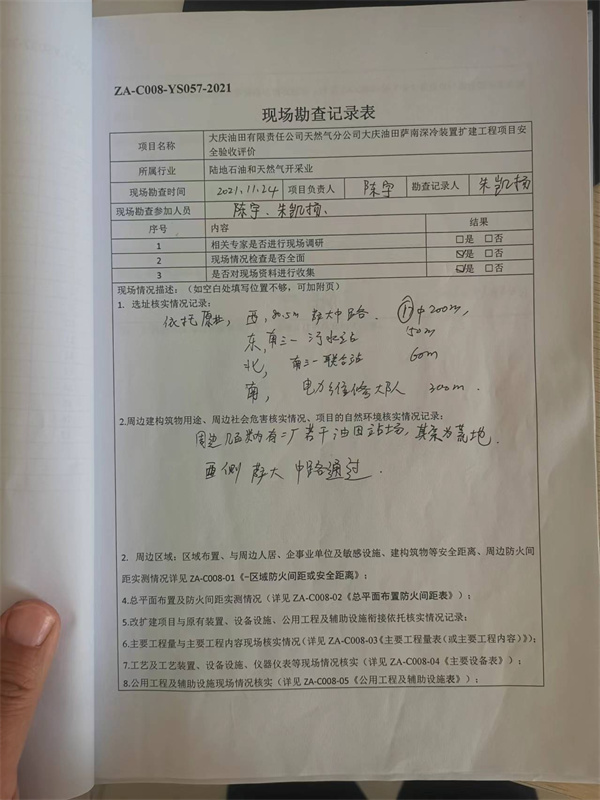 ZA-C008-YS057-2021
现场勘查记录表
项目名称 大庆油田有限责任公司天然气分公司大庆油田萨南深冷装置扩建工程项目安
全验收评价
所属行业 陆地石油和天然气开采业
现场勘查时间 2021.11.24 项目负责人 陈宇 勘查记录人 朱凯扬
现场勘查参加人员 陈宇、朱凯扬、
序号 内容 结果
1 相关专家是否进行现场调研 □是 □否
2 现场情况检查是否全面 ☑是 □否
3 是否对现场资料进行收集 ☑是 □否
现场情况描述:(如空白处填写位置不够,可加附页)
1. 选址核实情况记录:
依托原址, 西, 80.5m 中路. 200m,
东, 南三一污水站 50m
北, 南三一联合站 60m
南, 电力维修大队 300m.
2.周边建构筑物用途、周边社会危害核实情况、项目的自然环境核实情况记录:
周边 有二厂若干油田站场, 其余为荒地.
西侧 中路通过.
2. 周边区域:区域布置、与周边人居、企事业单位及敏感设施、建构筑物等安全距离、周边防火间
距实测情况详见 ZA-C008-01《-区域防火间距或安全距离》;
4.总平面布置及防火间距实测情况(详见 ZA-C008-02《总平面布置防火间距表》);
5.改扩建项目与原有装置、设备设施、公用工程及辅助设施衔接依托核实情况记录:
6.主要工程量与主要工程内容现场核实情况(详见 ZA-C008-03《主要工程量表(或主要工程内容)》);
7.工艺及工艺装置、设备设施、仪器仪表等现场情况核实(详见 ZA-C008-04《主要设备表》);
8.公用工程及辅助设施现场情况核实(详见 ZA-C008-05《公用工程及辅助设施表》);